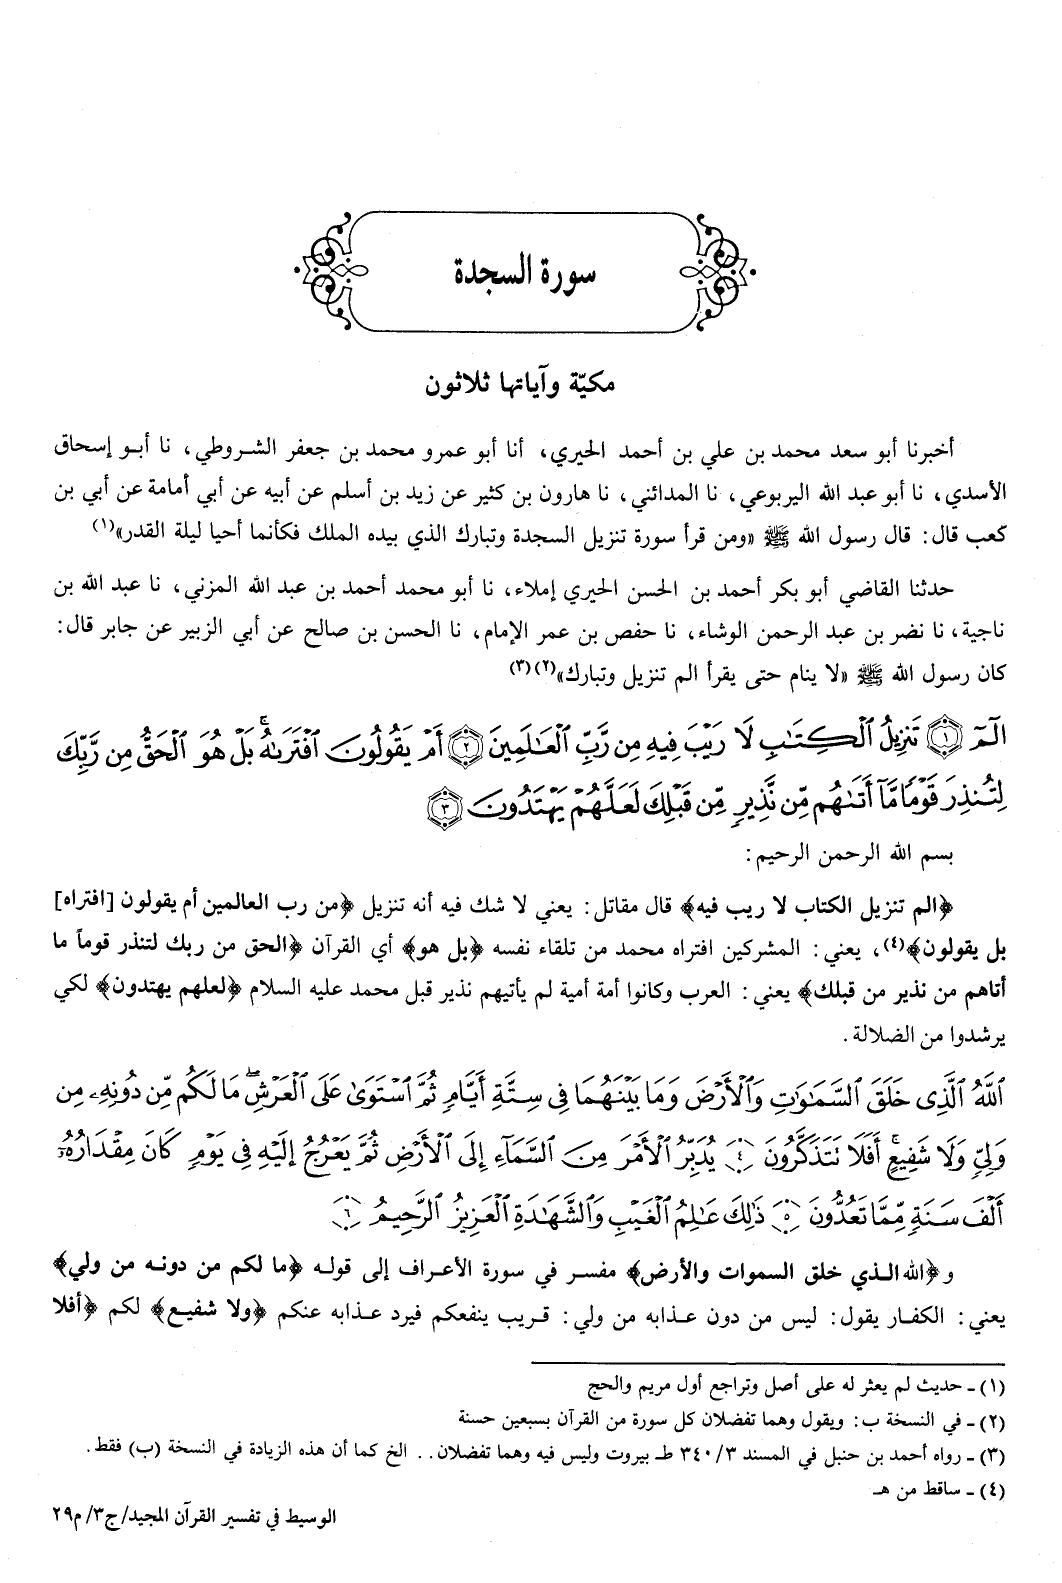 سورة السجدة
مكيّة وآياتها ثلاثون
أخبرنا أبو سعد محمد بن علي بن أحمد الحيري، أنا أبو عمرو محمد بن جعفر الشروطي، نا أبو إسحاق
الأسدي، نا أبو عبد الله اليربوعي، نا المدائني، نا هارون بن كثير عن زيد بن أسلم عن أبيه عن أبي أمامة عن أبي بن
كعب قال: قال رسول الله ﷺ «ومن قرأ سورة تنزيل السجدة وتبارك الذي بيده الملك فكأنما أحيا ليلة القدر»(١)
حدثنا القاضي أبو بكر أحمد بن الحسن الحيري إملاء، نا أبو محمد أحمد بن عبد الله المزني، نا عبد الله بن
ناجية، نا نضر بن عبد الرحمن الوشاء، نا حفص بن عمر الإمام، نا الحسن بن صالح عن أبي الزبير عن جابر قال:
كان رسول الله ﷺ «لا ينام حتى يقرأ الم تنزيل وتبارك»(٢)(٣)
الٓمٓ ﴿١﴾ تَنزِيلُ ٱلْكِتَٰبِ لَا رَيْبَ فِيهِ مِن رَّبِّ ٱلْعَٰلَمِينَ ﴿٢﴾ أَمْ يَقُولُونَ ٱفْتَرَىٰهُ ۚ بَلْ هُوَ ٱلْحَقُّ مِن رَّبِّكَ
لِتُنذِرَ قَوْمًا مَّآ أَتَىٰهُم مِّن نَّذِيرٍ مِّن قَبْلِكَ لَعَلَّهُمْ يَهْتَدُونَ ﴿٣﴾
بسم الله الرحمن الرحيم:
﴿الم تنزيل الكتاب لا ريب فيه﴾ قال مقاتل: يعني لا شك فيه أنه تنزيل ﴿من رب العالمين أم يقولون [افتراه]
بل يقولون﴾(٤)، يعني: المشركين افتراه محمد من تلقاء نفسه ﴿بل هو﴾ أي القرآن ﴿الحق من ربك لتنذر قوماً ما
أتاهم من نذير من قبلك﴾ يعني: العرب وكانوا أمة أمية لم يأتيهم نذير قبل محمد عليه السلام ﴿لعلهم يهتدون﴾ لكي
يرشدوا من الضلالة.
ٱللَّهُ ٱلَّذِى خَلَقَ ٱلسَّمَٰوَٰتِ وَٱلْأَرْضَ وَمَا بَيْنَهُمَا فِى سِتَّةِ أَيَّامٍ ثُمَّ ٱسْتَوَىٰ عَلَى ٱلْعَرْشِ ۖ مَا لَكُم مِّن دُونِهِۦ مِن
وَلِىٍّ وَلَا شَفِيعٍ ۚ أَفَلَا تَتَذَكَّرُونَ ﴿٤﴾ يُدَبِّرُ ٱلْأَمْرَ مِنَ ٱلسَّمَآءِ إِلَى ٱلْأَرْضِ ثُمَّ يَعْرُجُ إِلَيْهِ فِى يَوْمٍ كَانَ مِقْدَارُهُۥٓ
أَلْفَ سَنَةٍ مِّمَّا تَعُدُّونَ ﴿٥﴾ ذَٰلِكَ عَٰلِمُ ٱلْغَيْبِ وَٱلشَّهَٰدَةِ ٱلْعَزِيزُ ٱلرَّحِيمُ ﴿٦﴾
و﴿الله الذي خلق السموات والأرض﴾ مفسر في سورة الأعراف إلى قوله ﴿ما لكم من دونه من ولي﴾
يعني: الكفار يقول: ليس من دون عذابه من ولي: قريب ينفعكم فيرد عذابه عنكم ﴿ولا شفيع﴾ لكم ﴿أفلا
(١) - حديث لم يعثر له على أصل وتراجع أول مريم والحج
(٢) - في النسخة ب: ويقول وهما تفضلان كل سورة من القرآن بسبعين حسنة
(٣) - رواه أحمد بن حنبل في المسند ٣/ ٣٤٠ طـ بيروت وليس فيه وهما تفضلان.. الخ كما أن هذه الزيادة في النسخة (ب) فقط.
(٤) - ساقط من هـ
الوسيط في تفسير القرآن المجيد/ ج٣/ م٢٩